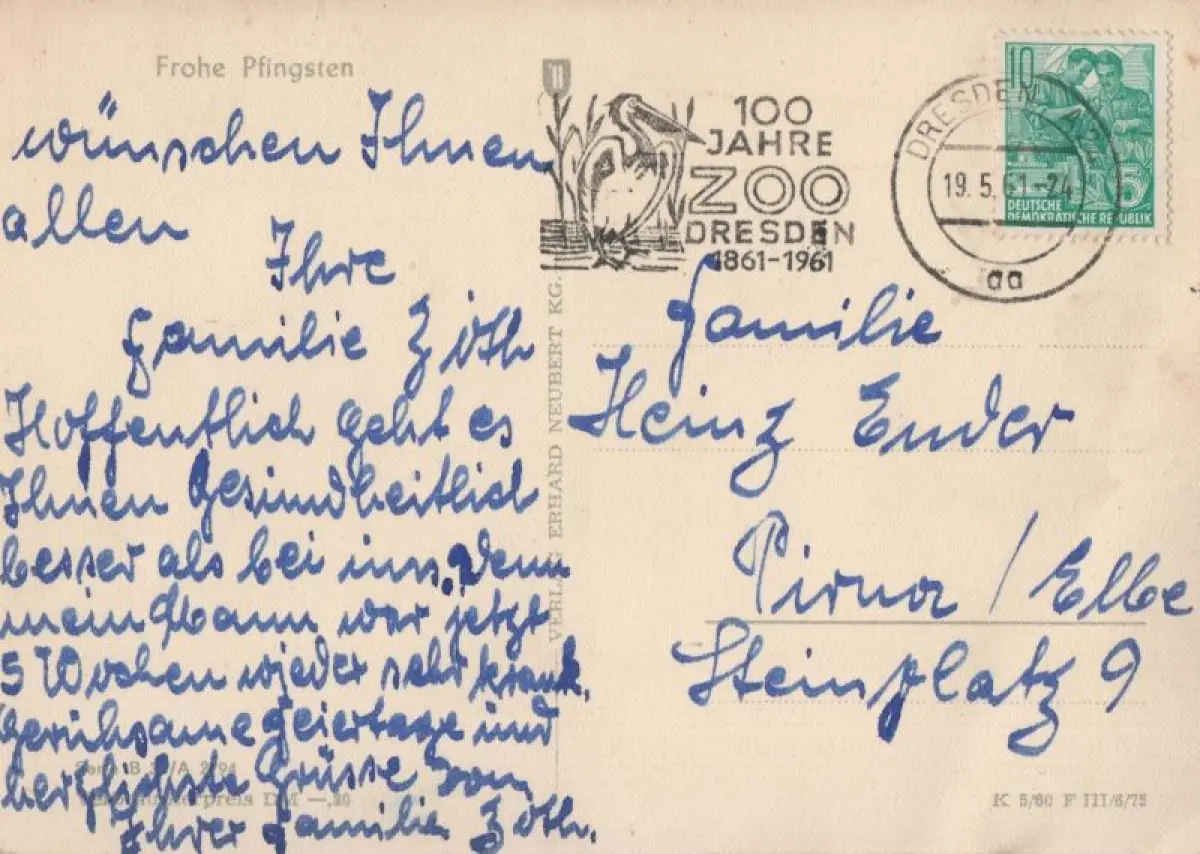 Frohe Pfingsten
wünschen Ihnen
allen
Ihre
Familie Zöth
Hoffentlich geht es
Ihnen Gesundheitlich
besser als bei uns, denn
mein Mann war jetzt
5 Wochen wieder sehr krank.
Geruhsame Feiertage und
herzlichste Grüsse von
Ihrer Familie Zöth.
VERLAG ERHARD NEUBERT KG.
100
JAHRE
ZOO
DRESDEN
1861-1961
DRESDEN
19.5.61-24
aa
10
5
DEUTSCHE
DEMOKRATISCHE REPUBLIK
Familie
Heinz Ender
Pirna / Elbe
Steinplatz 9
K 5/60 F III/6/75